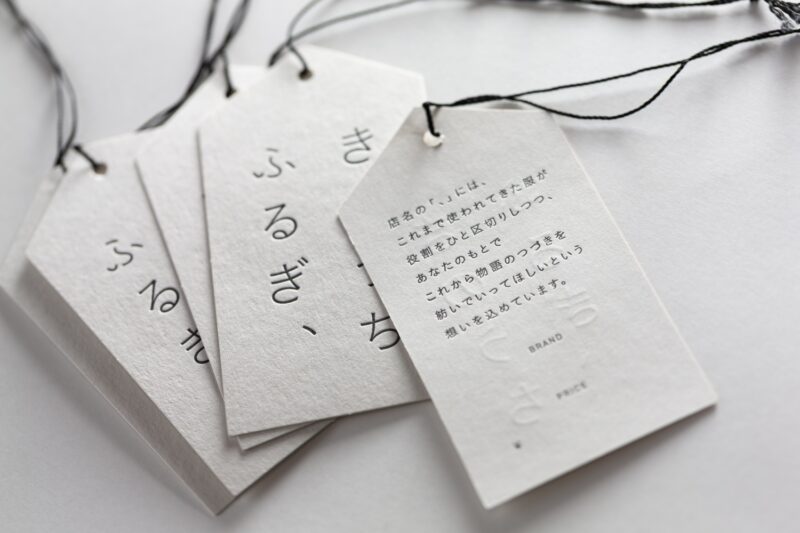 ふるぎ
き
ち
ふるぎ、
店名の「、」には、
これまで使われてきた服が
役割をひと区切りしつつ、
あなたのもとで
これから物語のつづきを
紡いでいってほしいという
想いを込めています。
BRAND
PRICE
¥